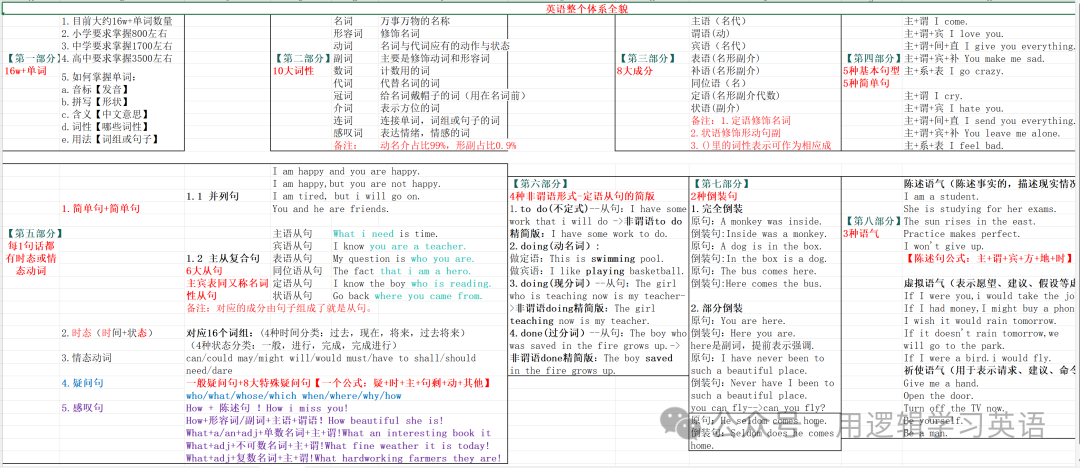 英语整个体系全貌
【第一部分】
16w+单词
1.目前大约16w+单词数量
2.小学要求掌握800左右
3.中学要求掌握1700左右
4.高中要求掌握3500左右
5.如何掌握单词;
a.音标【发音】
b.拼写【形状】
c.含义【中文意思】
d.词性【哪些词性】
e.用法【词组或句子】
【第二部分】
10大词性
名词 万事万物的名称
形容词 修饰名词
动词 名词与代词应有的动作与状态
副词 主要是修饰动词和形容词
数词 计数用的词
代词 代替名词的词
冠词 给名词戴帽子的词（用在名词前）
介词 表示方位的词
连词 连接单词，词组或句子的词
感叹词 表达情绪，情感的词
备注: 动名介占比99%，形副占比0.9%
【第三部分】
8大成分
主语（名代）
谓语(动)
宾语（名代）
表语(名形副介)
补语(名形副介)
同位语（名）
定语(名形副介代数)
状语(副介)
备注: 1.定语修饰名词
2.状语修饰形动句副
3.()里的词性表示可作为相应成
【第四部分】
5种基本句型
5种简单句
主+谓 I come.
主+谓+宾 I love you.
主+谓+间+直 I give you everything.
主+谓+宾+补 You make me sad.
主+系+表 I go crazy.
主+谓 I cry.
主+谓+宾 I hate you.
主+谓+间+直 I send you everything.
主+谓+宾+补 You leave me alone.
主+系+表 I feel bad.
【第五部分】
每1句话都
有时态或情
态动词
1.简单句+简单句
1.1 并列句
I am happy and you are happy.
I am happy,but you are not happy.
I am tired, but i will go on.
You and he are friends.
1.2 主从复合句
6大从句
主宾表同又称名词
性从句
主语从句 What i need is time.
宾语从句 I know you are a teacher.
表语从句 My question is who you are.
同位语从句 The fact that i am a hero.
定语从句 I know the boy who is reading.
状语从句 Go back where you came from.
备注: 对应的成分由句子组成了就是从句。
2.时态（时间+状态） 对应16个词组：(4种时间分类：过去，现在，将来，过去将来)
（4种状态分类：一般，进行，完成，完成进行）
3.情态动词 can/could may/might will/would must/have to shall/should
need/dare
4.疑问句 一般疑问句+8大特殊疑问句【一个公式: 疑+时+主+句剩+动+其他】
who/what/whose/which when/where/why/how
5.感叹句 How + 陈述句 ! How i miss you!
How+形容词/副词+主语+谓语! How beautiful she is!
What+a/an+adj+单数名词+主+谓!What an interesting book it
What+adj+不可数名词+主+谓!What fine weather it is today!
What+adj+复数名词+主+谓!What hardworking farmers they are!
【第六部分】
4种非谓语形式-定语从句的简版
1.to do(不定式)--从句: I have some
work that i will do ->非谓语to do
精简版: I have some work to do.
2.doing(动名词):
做定语: This is swimming pool.
做宾语: I like playing basketball.
3.doing(现分词)--从句: The girl
who is teaching now is my teacher-
>非谓语doing精简版: The girl
teaching now is my teacher.
4.done(过分词)--从句: The boy who
was saved in the fire grows up.->
非谓语done精简版: The boy saved
in the fire grows up.
【第七部分】
2种倒装句
1.完全倒装
原句: A monkey was inside.
倒装句:Inside was a monkey.
原句: A dog is in the box.
倒装句:In the box is a dog.
原句: The bus comes here.
倒装句:Here comes the bus.
2.部分倒装
原句: You are here.
倒装句: Here you are.
here是副词，提前表示强调.
原句: I have never been to
such a beautiful place.
倒装句: Never have I been to
such a beautiful place.
you can fly-->can you fly?
原句: He seldom comes home.
倒装句: Seldom does he comes
home.
【第八部分】
3种语气
陈述语气（陈述事实的，描述现实情况
I am a student.
She is studying for her exams.
The sun rises in the east.
Practice makes perfect.
I won't give up.
【陈述句公式: 主+谓+宾+方+地+时】
虚拟语气（表示愿望、建议、假设等虚
If I were you,i would take the jo
If I had money,I might buy a phon
I wish it would rain tomorrow.
If it doesn't rain tomorrow,we
will go to the park.
If I were a bird.i would fly.
祈使语气（用于表示请求、建议、命令
Give me a hand.
Open the door.
Turn off the TV now.
Be yourself.
Be a man.
公众号 · 用逻辑学习英语